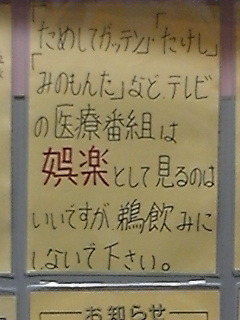 「ためしてガッテン」「たけし」
「みのもんた」など、テレビ
の医療番組は
娯楽として見るのは
いいですが、鵜飲みに
しないで下さい。
お知らせ